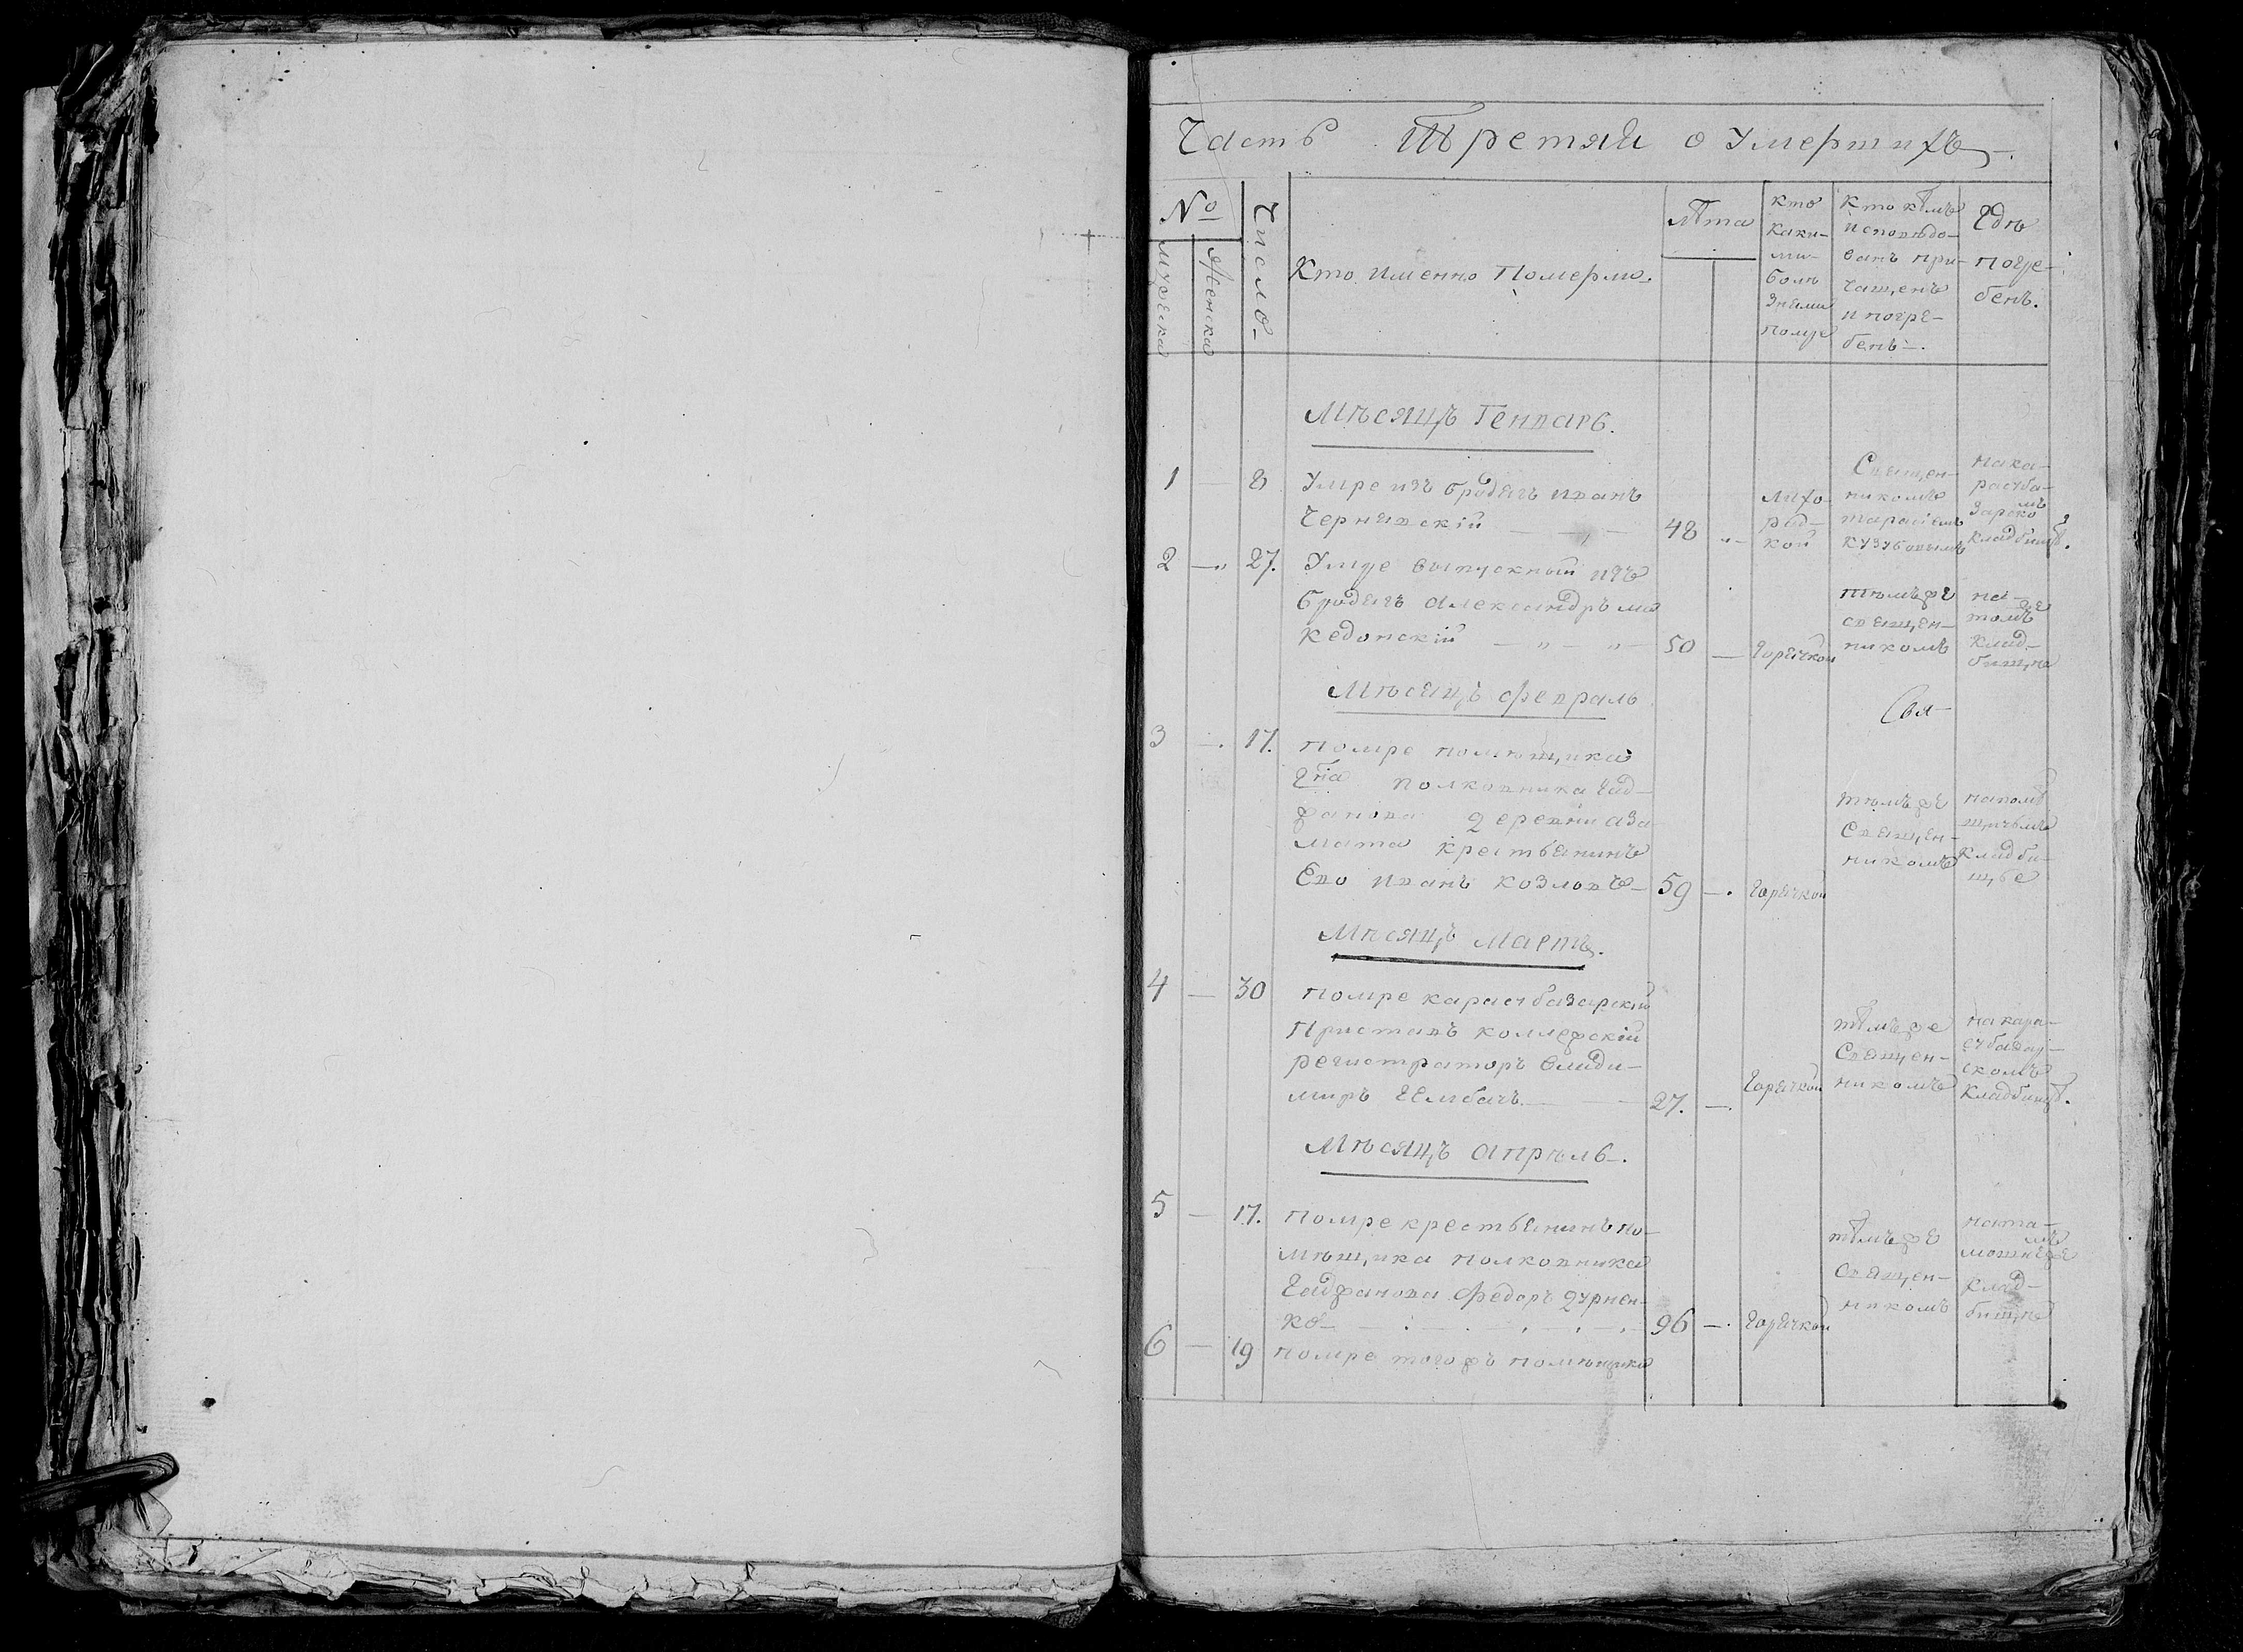 Часть Третяя о Умершихъ.
№
Мужеска
Женска
Число
Кто именно Померли.
Лѣта
Кто
каки-
ми
болѣ
знями
помре
Кто кѣмъ
исповѣдо-
ванъ при-
чащенъ
и погре-
бенъ.
Гдѣ
погре-
бенъ.
Мѣсяцъ Генварь.
1 — 8 Умре изъ бродягъ Иванъ
Чернявскій 48
лихо-
рад-
кой
Священ-
никомъ
Тарасіемъ
на ка-
расуба-
зарско
мъ
кладбищѣ.
2 — 27. Умре выпускный изъ
бродягъ Александръ Ма
кедонскій — 50 — горячкой
тѣмъ же
священ-
никомъ
на
томъ же
клад-
бищѣ
Мѣсяцъ Февраль
Свя-
3 — 17. помре помѣщика
гна полковника
деревни Аза
мата крестьянинъ
Ево Иванъ Козловъ — 59 — горячкой
тѣмъ же
Священ-
никомъ
на помѣ
щичьемъ
кладби-
щье
Мѣсяцъ Мартъ.
4 — 30 помре карасубазарскій
Приставъ коллежскій
регистраторъ Влади-
миръ 27. — горячкой
тѣмъ же
Священ-
никомъ
на кара-
субазар-
скомъ
кладбищѣ.
Мѣсяцъ Апрѣль.
5 — 17. помре крестьянинъ по-
мѣщика полковника
Федоръ Дурнен-
ко 96 — горячкой
тѣмъ же
Священ-
никомъ
на та-
мошнемъ же
клад-
бищѣ
6 — 19 помре тогожъ помѣщика